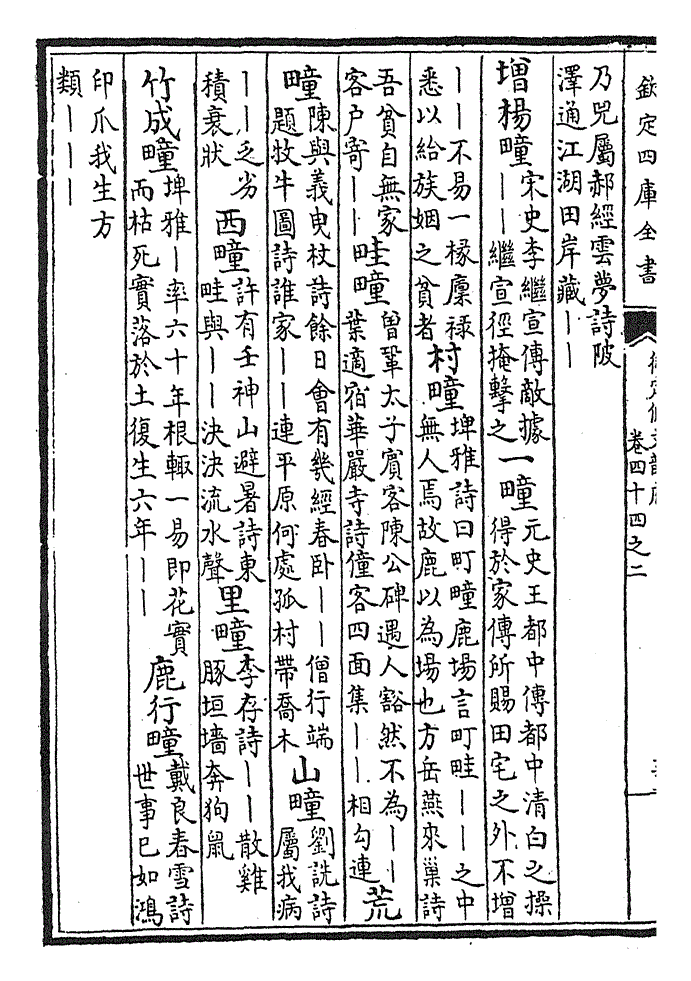 欽定四庫全書
御定佩文韻府
卷四十四之二
乃兕屬郝經雲夢詩陂
澤通江湖田岸藏——
增楊疃
宋史李繼宣傳敵據
——繼宣徑掩擊之
一疃
元史王都中傳都中清白之操
得於家傳所賜田宅之外不增
——不易一椽廩祿
悉以給族姻之貧者
村疃
埤雅詩曰町疃鹿場言町畦——之中
無人焉故鹿以為場也方岳燕來巢詩
吾貧自無家
客户寄——
畦疃
曽鞏太子賓客陳公碑遇人豁然不為——
葉適宿華嚴寺詩僮客四面集——相勾連
荒
疃
陳與義曳杖詩餘日會有幾經春卧——僧行端
題牧牛圖詩誰家——連平原何處孤村帶喬木
山疃
劉詵詩
屬我病
——乏劣
積衰狀
西疃
許有壬神山避暑詩東
畦與——決決流水聲
里疃
李存詩——散雞
豚垣墻奔狗鼠
竹成疃
埤雅—率六十年根輙一易即花實
而枯死實落於土復生六年——
鹿行疃
戴良春雪詩
世事已如鴻
印爪我生方
類———